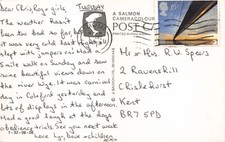 Dear Chris, Roy & girls, TUESDAY
The weather hasn't
been too bad so far, but
it was very cold last night. Dad
slept with jumpers on. Did a 5
mile walk on Sunday and saw
some beautiful views down on
the river Wye. It was carnival
day in Coleford yesterday and
lots of displays in the afternoon.
Had a good laugh at the dogs
obedience trials. See you next week
love by bowe &children
A SALMON
CAMERACOLOUR
POST CARD
Mr & Mrs R. W. Spears
2 Ravenshill
Chislehurst
Kent
BR7 5PD